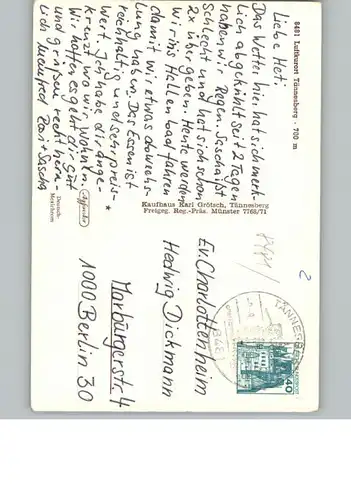 8481 Luftkurort Tännesberg - 700 m
Liebe Heti.
Das Wetter hier hat sich merk-
lich abgekühlt seit 2 Tagen
haben wir Regen. Sascha ißt
schlecht und hat sich schon
2x über geben. Heute werden
wir ins Hallenbad fahren
damit wir etwas abwechs-
lung haben. Das Essen ist
reichhaltig und sehr preis-
wert. Ich habe dir ange-
kreuzt wo wir wohnen
Wir hoffen es geht dir gut
und grüßen recht herz-
lich Manfred Roni + Sascha
Kaufhaus Karl Grötsch, Tännesberg
Freigeg. Reg.-Präs. Münster 7768/71
Ev. Charlottenheim
Hedwig Dickmann
Marburgerstr. 4
1000 Berlin 30
TÄNNESBERG
8481
40
2